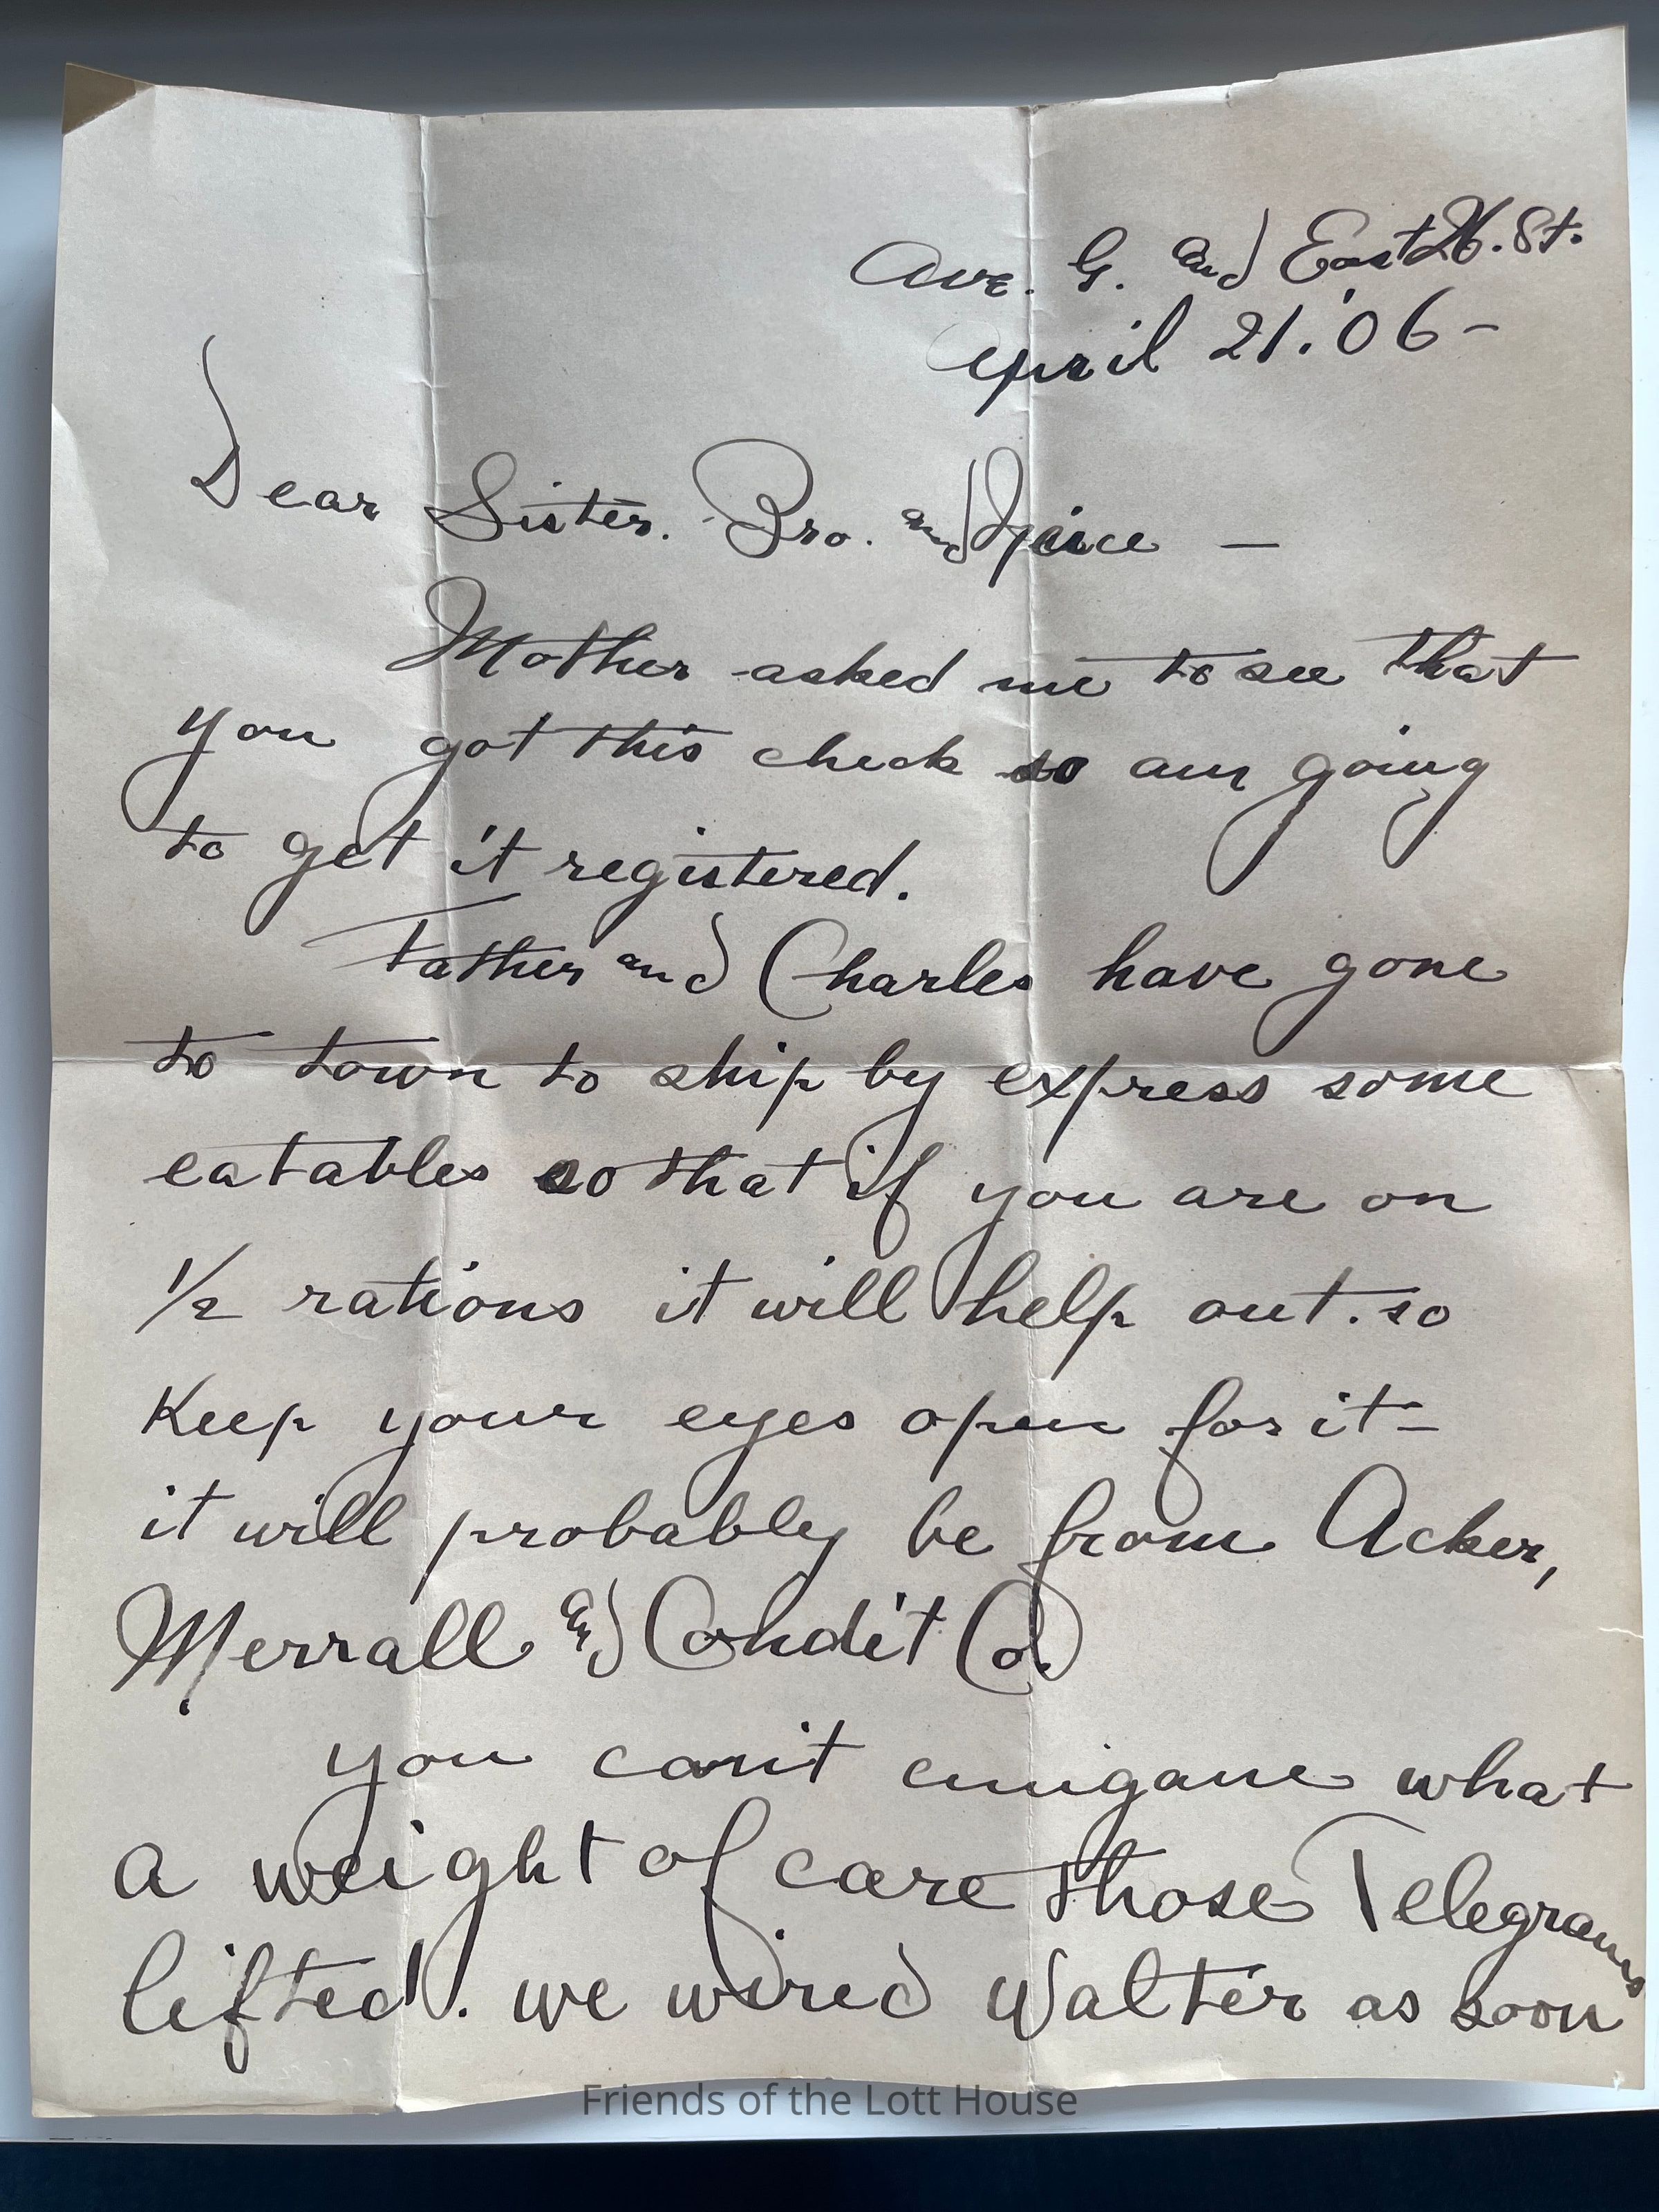 Ave. G. and East 26. St.
April 21. '06 -
Dear Sister. Bro. and Joice —
Mother asked me to see that
you got this check so am going
to get it registered.
Father and Charles have gone
to town to ship by express some
eatables so that if you are on
1/2 rations it will help out. so
Keep your eyes open for it -
it will probably be from Acker,
Merrall and Condit Co.
you can't emigane what
a weight of care those Telegrams
lifted. we wired Walter as soon
Friends of the Lott House